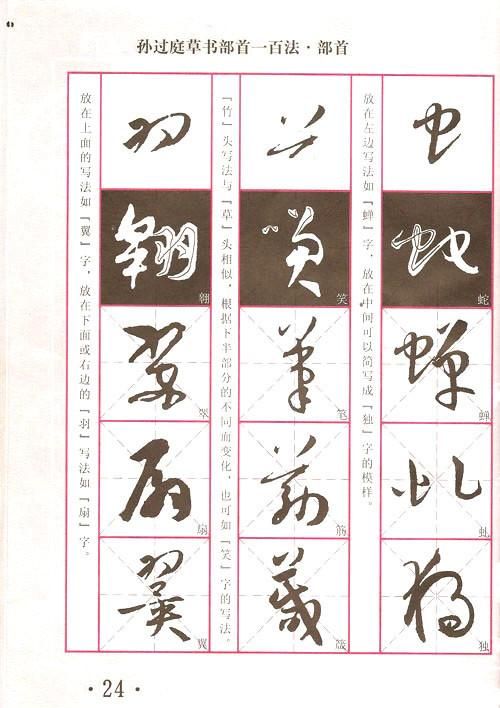 孙过庭草书部首一百法·部首
虫
放在左边写法如「蝉」字，放在中间可以简写成「独」字的模样。
蛇
蝉
虬
独
「竹」头写法与「草」头相似，根据下半部分的不同而变化，也可如「笑」字的写法。
笑
笔
筋
箴
羽
放在上面的写法如「翼」字，放在下面或右边的「羽」写法如「扇」字。
翱
翠
扇
翼
·24·